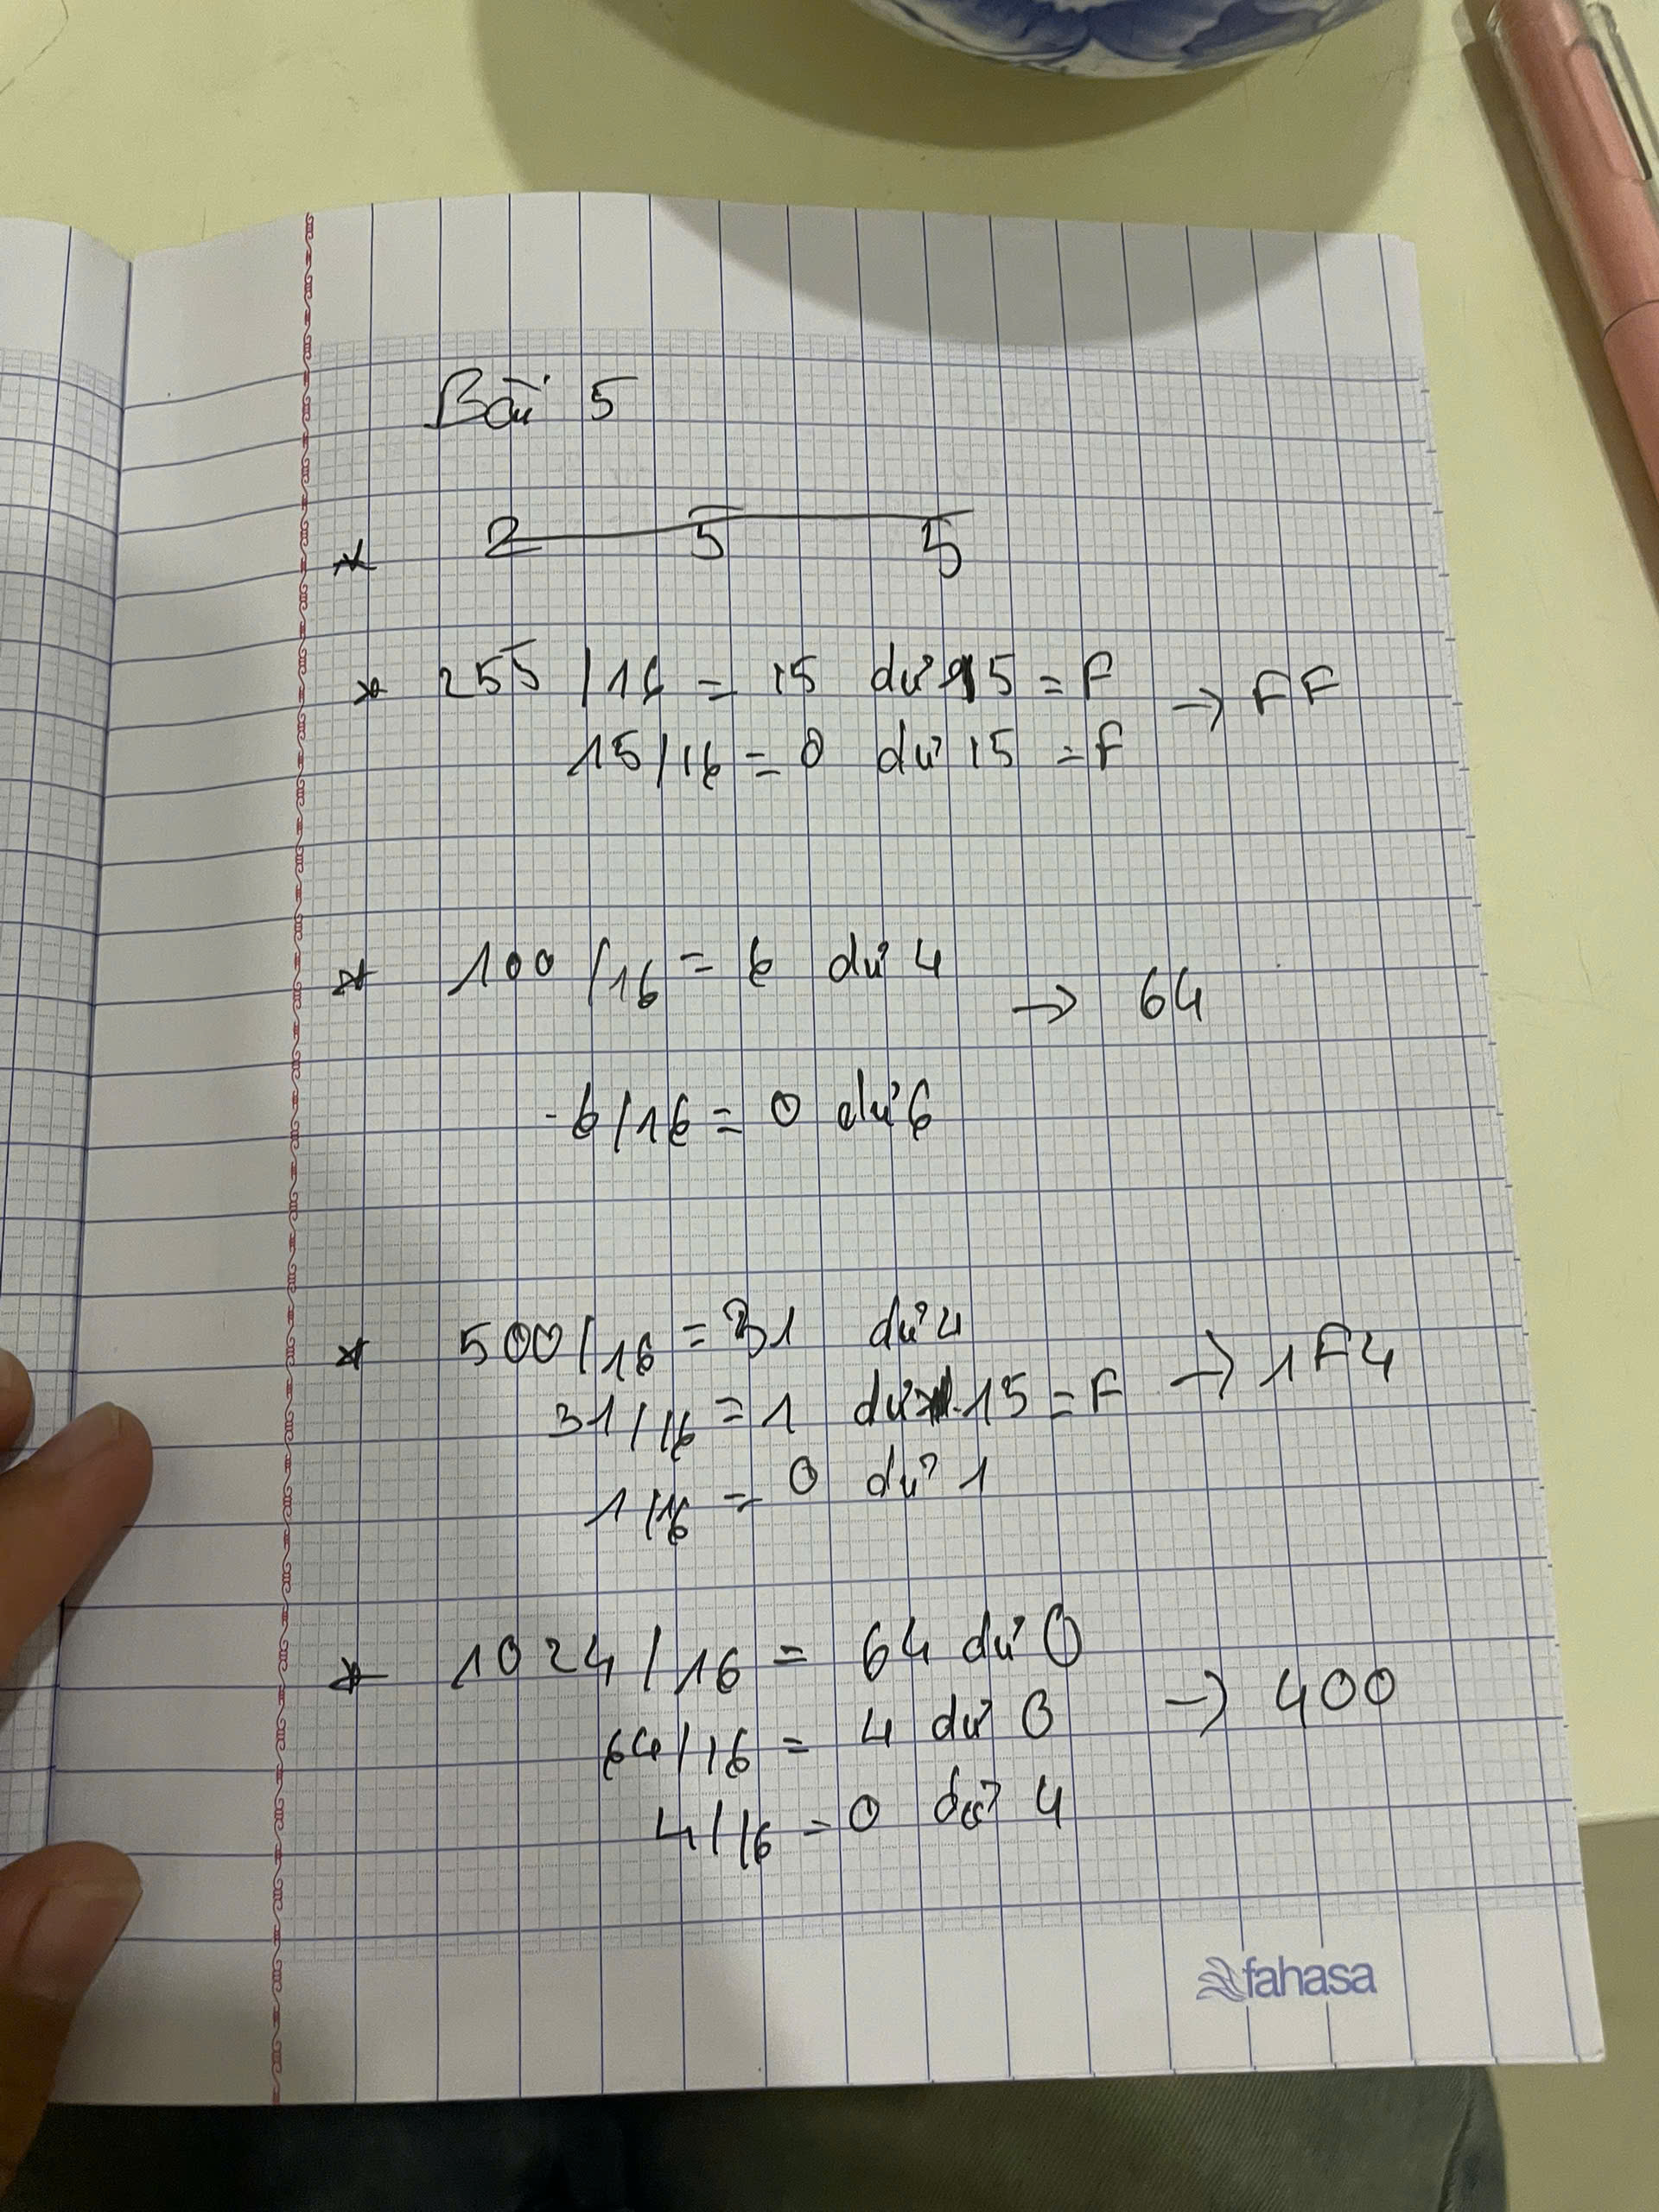 Bài 5
* 2 5 5
* 255 / 16 = 15 dư 15 = F → FF
15 / 16 = 0 dư 15 = F
* 100 / 16 = 6 dư 4 → 64
- 6 / 16 = 0 dư 6
* 500 / 16 = 31 dư 4
31 / 16 = 1 dư 15 = F → 1F4
1 / 16 = 0 dư 1
* 1024 / 16 = 64 dư 0
64 / 16 = 4 dư 0 → 400
4 / 16 = 0 dư 4
fahasa